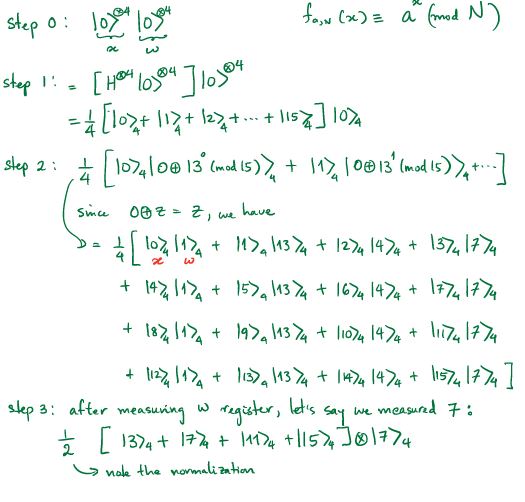 step 0: |0⟩^⊗4 |0⟩^⊗4 f_{a,N}(x) ≡ a^x (mod N)
x w
step 1: = [H^⊗4 |0⟩^⊗4] |0⟩^⊗4
= 1/4 [|0⟩₄ + |1⟩₄ + |2⟩₄ + ··· + |15⟩₄] |0⟩₄
step 2: 1/4 [|0⟩₄ |0 ⊕ 13^0 (mod 15)⟩₄ + |1⟩₄ |0 ⊕ 13^1 (mod 15)⟩₄ + ···]
since 0 ⊕ z = z, we have
= 1/4 [ |0⟩₄ |1⟩₄ + |1⟩₄ |13⟩₄ + |2⟩₄ |4⟩₄ + |3⟩₄ |7⟩₄
x w
+ |4⟩₄ |1⟩₄ + |5⟩₄ |13⟩₄ + |6⟩₄ |4⟩₄ + |7⟩₄ |7⟩₄
+ |8⟩₄ |1⟩₄ + |9⟩₄ |13⟩₄ + |10⟩₄ |4⟩₄ + |11⟩₄ |7⟩₄
+ |12⟩₄ |1⟩₄ + |13⟩₄ |13⟩₄ + |14⟩₄ |4⟩₄ + |15⟩₄ |7⟩₄ ]
step 3: after measuring w register, let's say we measured 7:
1/2 [ |3⟩₄ + |7⟩₄ + |11⟩₄ + |15⟩₄ ] ⊗ |7⟩₄
note the normalization